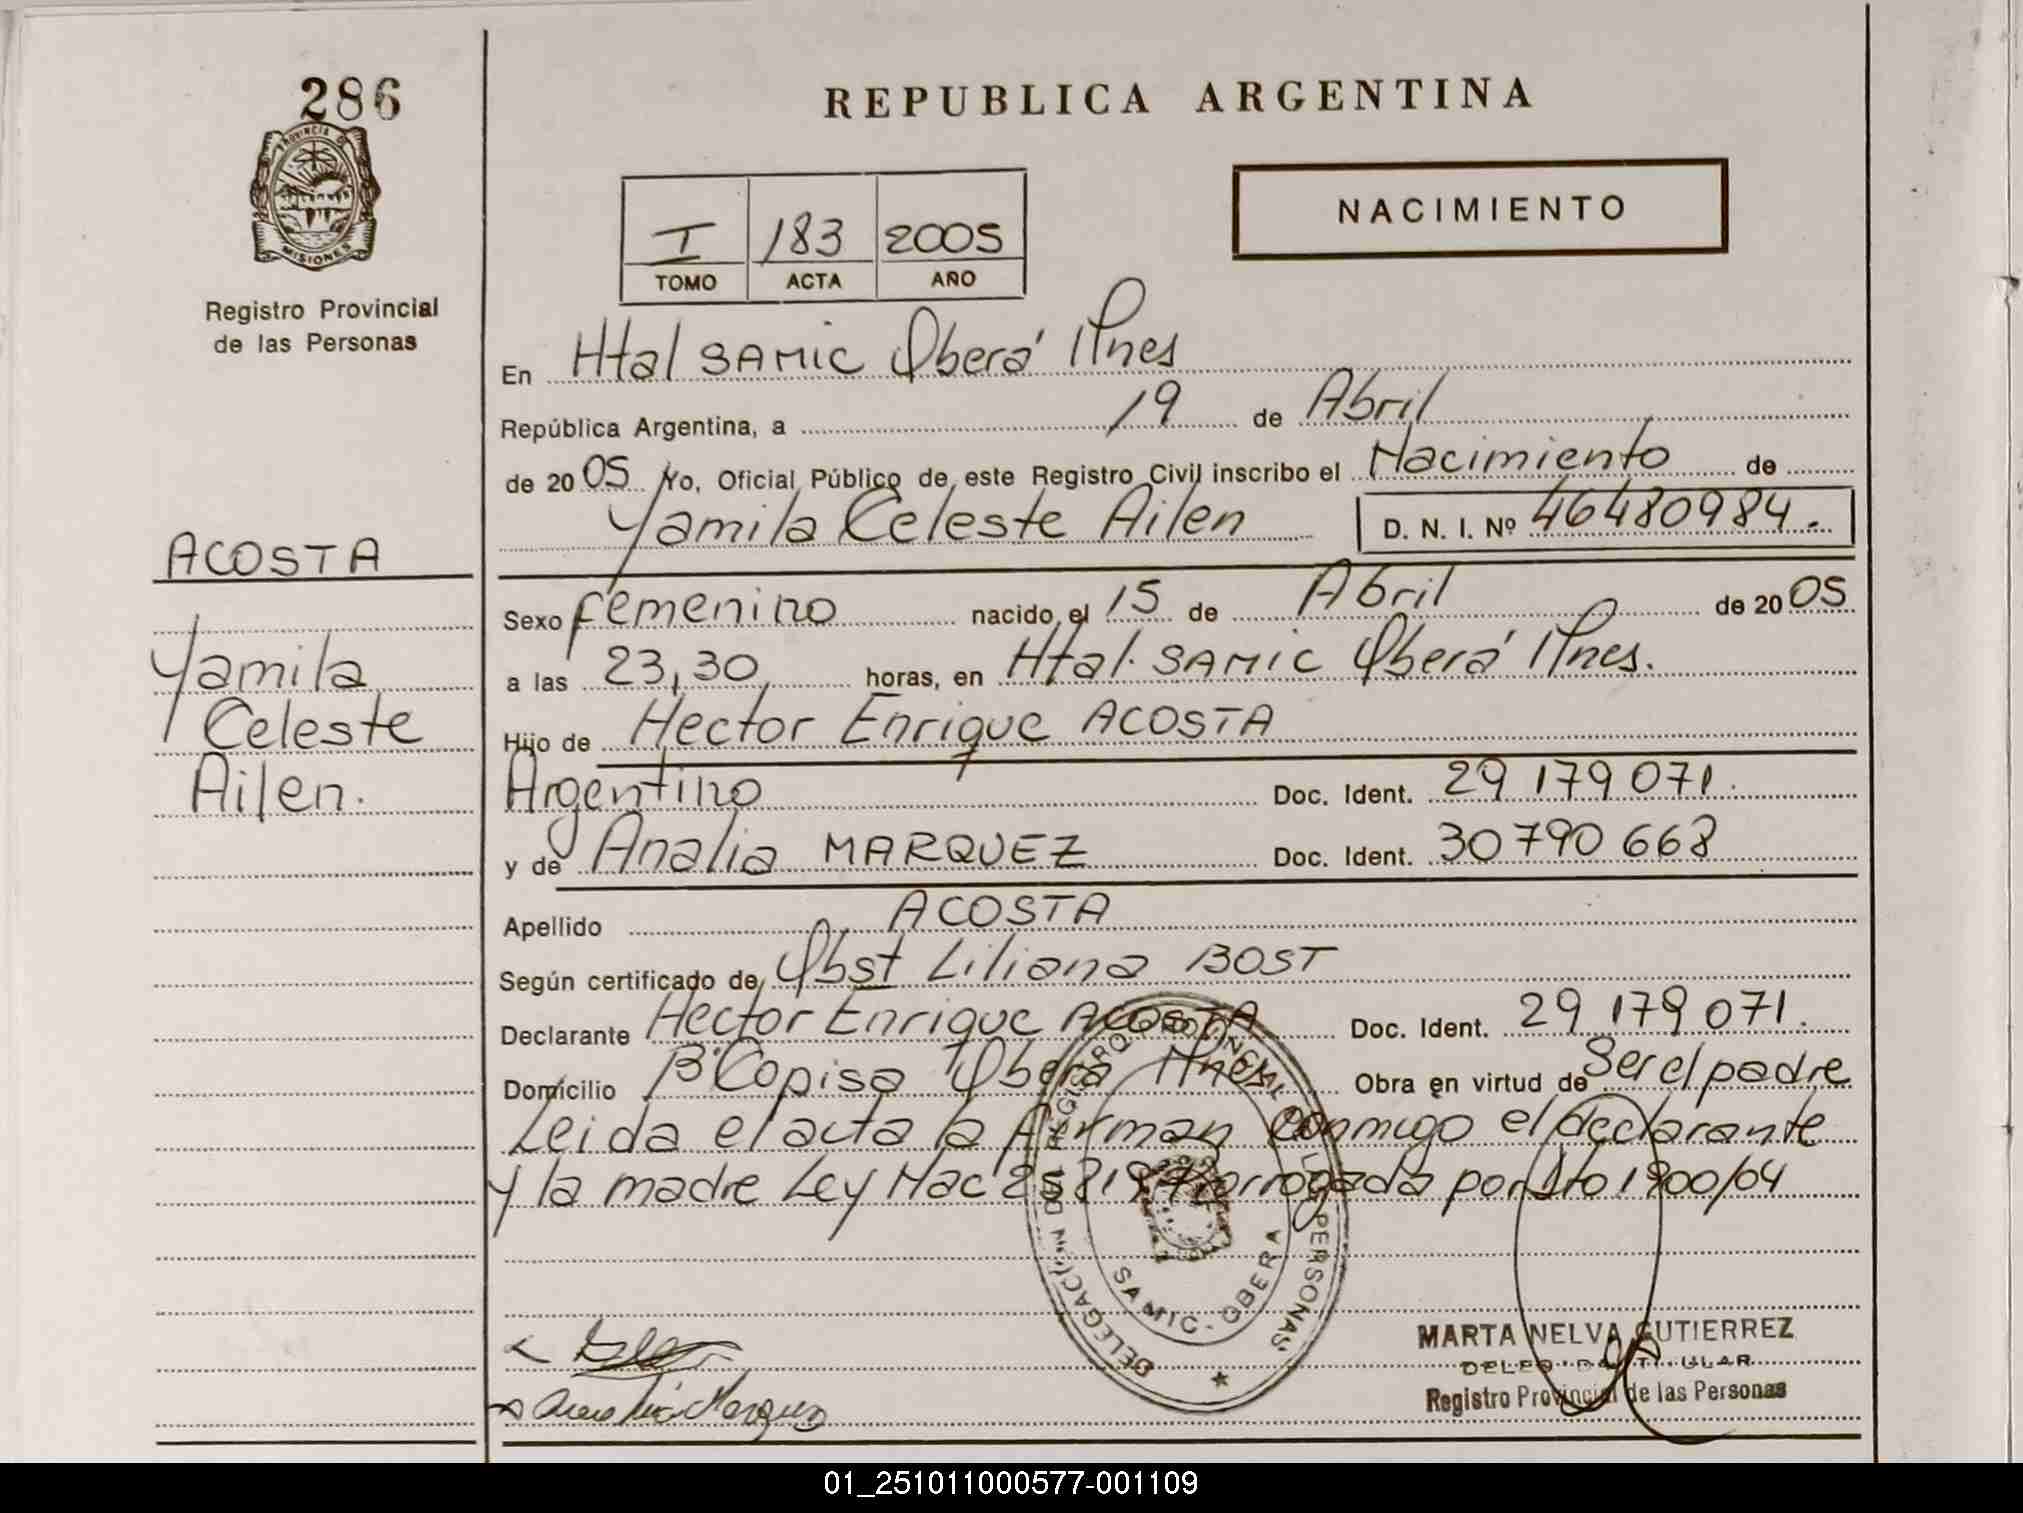 286
PROVINCIA DE
MISIONES
Registro Provincial
de las Personas
ACOSTA
Yamila
Celeste
Ailen.
REPUBLICA ARGENTINA
I 183 2005
TOMO ACTA AÑO
NACIMIENTO
En Htal SAMIC Oberá Mnes
República Argentina, a 19 de Abril
de 2005 Yo, Oficial Público de este Registro Civil inscribo el Nacimiento de
Yamila Celeste Ailen D. N. I. Nº 46480984.
Sexo femenino nacido el 15 de Abril de 2005
a las 23,30 horas, en Htal. SAMIC Oberá Mnes.
Hijo de Hector Enrique ACOSTA
Argentino Doc. Ident. 29 179 071.
y de Analia MARQUEZ Doc. Ident. 30 790 668
Apellido ACOSTA
Según certificado de Obst Liliana BOST
Declarante Hector Enrique ACOSTA Doc. Ident. 29 179 071.
Domicilio Bº Copisa Oberá Mnes Obra en virtud de Ser el padre
Leida el acta la firman conmigo el declarante
y la madre Ley Nac 25819 Prorrogada por Dto 1900/04
DELEGACIÓN DEL REGISTRO PROVINCIAL DE LAS PERSONAS
SAMIC - OBERA
Analia Marquez
MARTA NELVA GUTIERREZ
DELEGADA TITULAR
Registro Provincial de las Personas
01_251011000577-001109